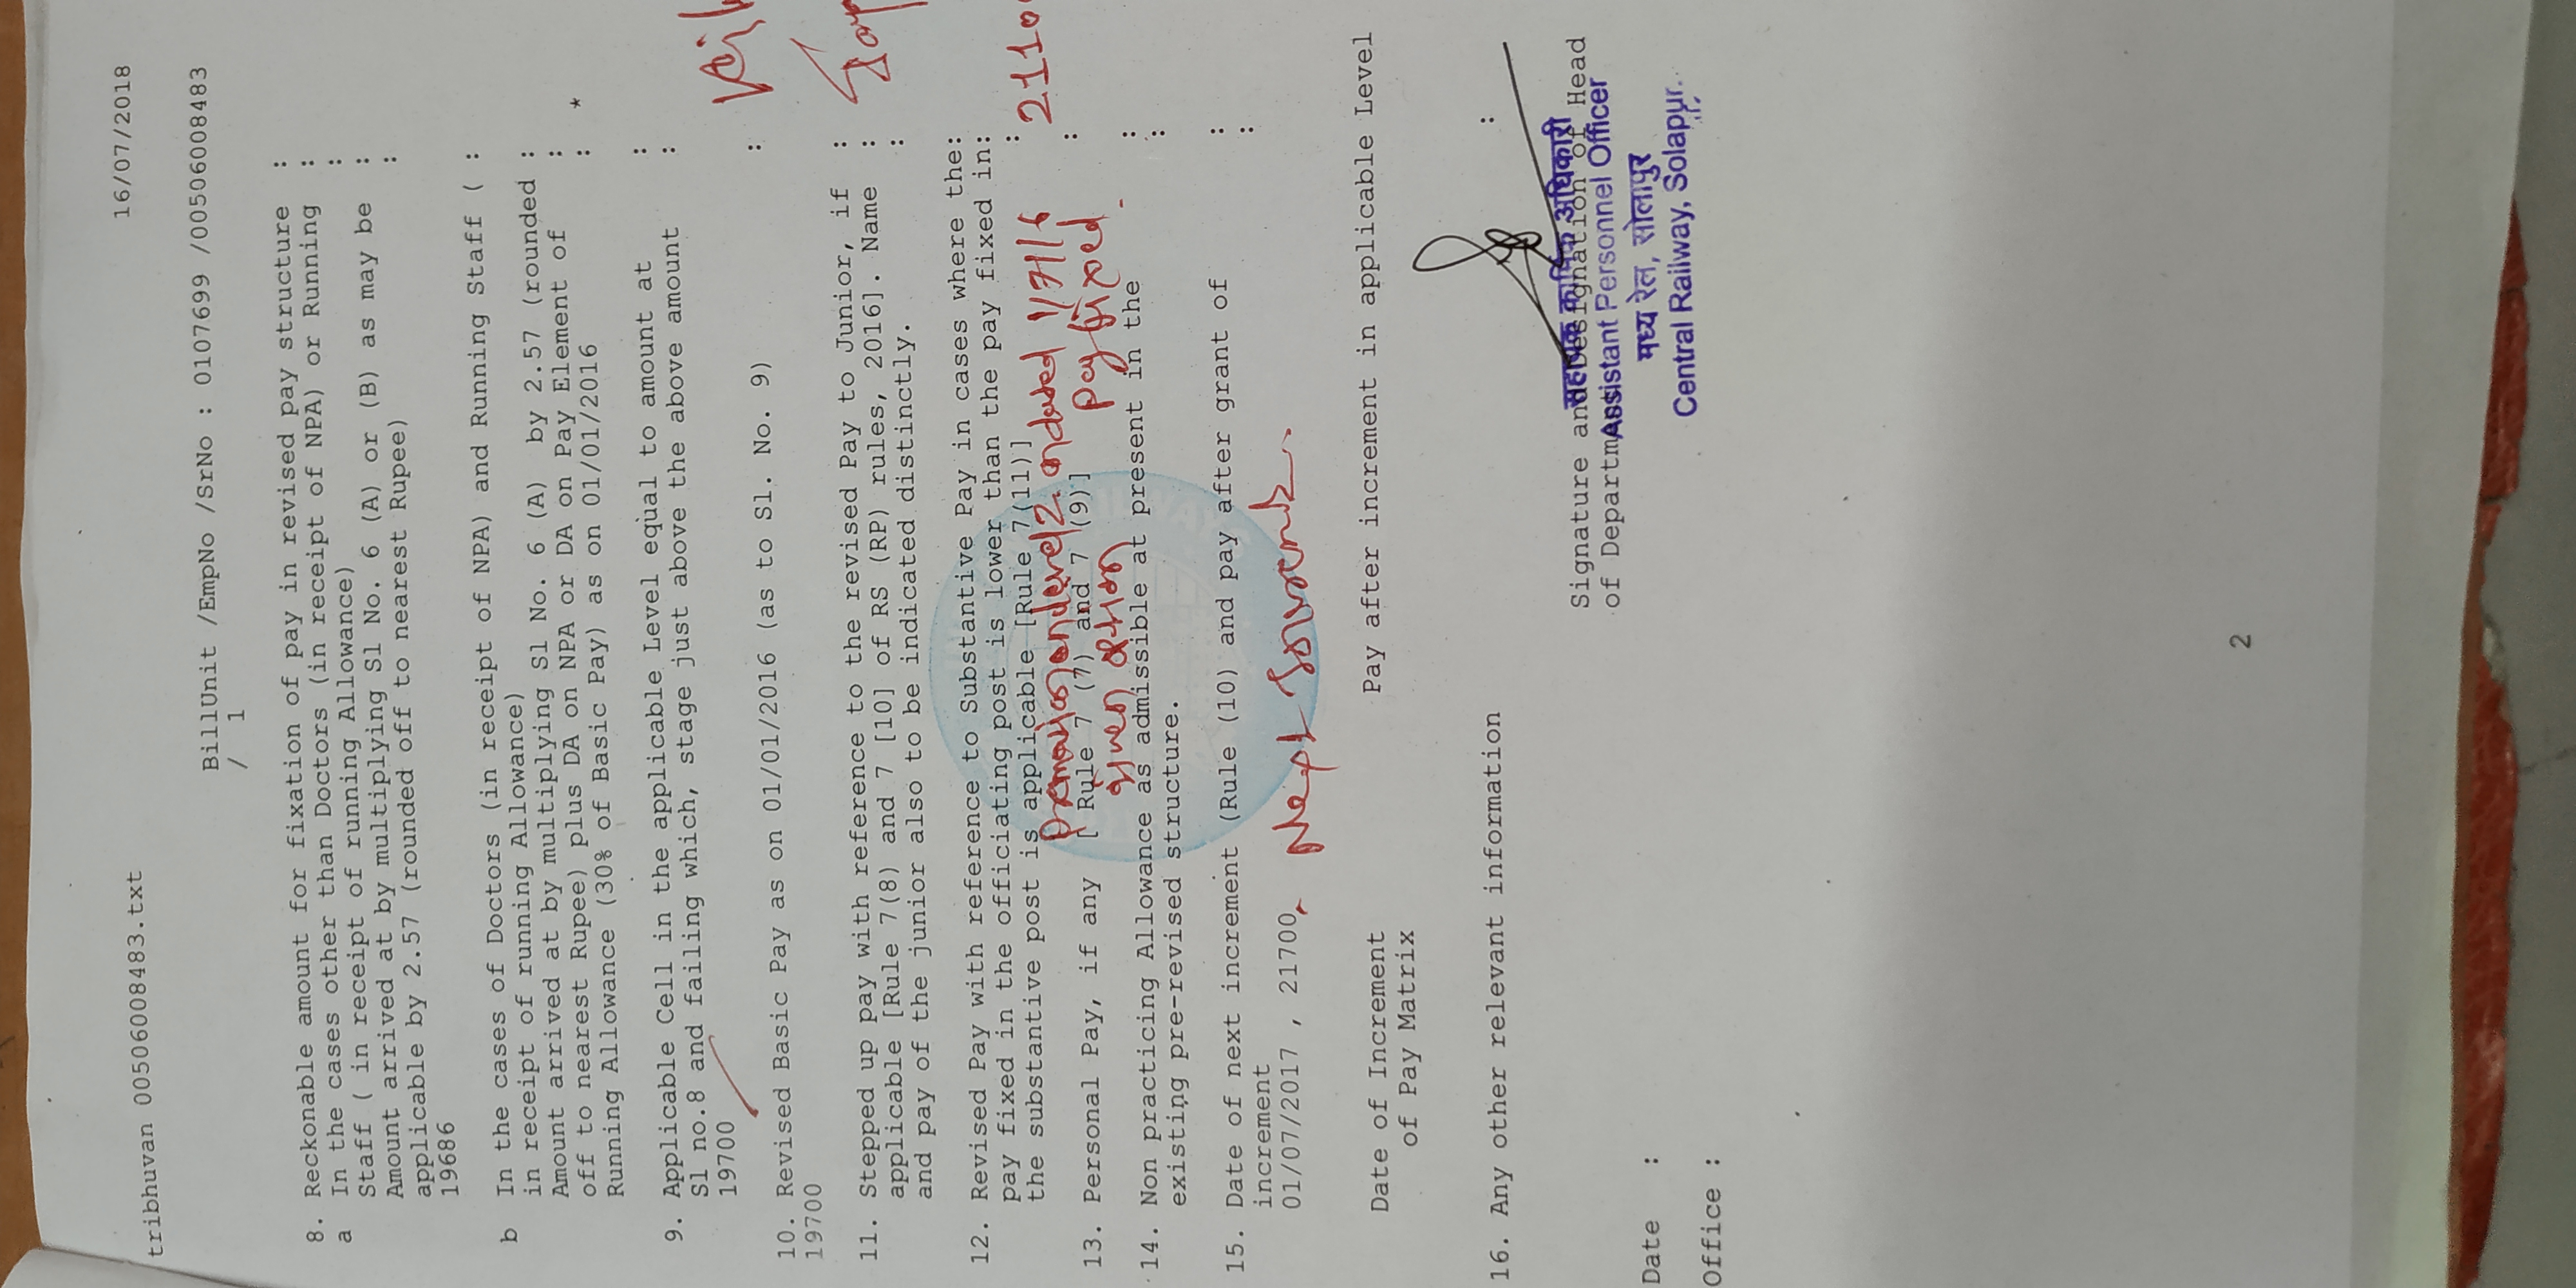 tribhuvan 00506008483.txt
16/07/2018
BillUnit /EmpNo /SrNo : 0107699 /00506008483
/ 1
8. Reckonable amount for fixation of pay in revised pay structure :
a In the cases other than Doctors (in receipt of NPA) or Running :
Staff ( in receipt of running Allowance) :
Amount arrived at by multiplying Sl No. 6 (A) or (B) as may be :
applicable by 2.57 (rounded off to nearest Rupee) :
19686
b In the cases of Doctors (in receipt of NPA) and Running Staff ( :
in receipt of running Allowance)
Amount arrived at by multiplying Sl No. 6 (A) by 2.57 (rounded :
off to nearest Rupee) plus DA on NPA or DA on Pay Element of :
Running Allowance (30% of Basic Pay) as on 01/01/2016 : *
9. Applicable Cell in the applicable Level equal to amount at :
Sl no.8 and failing which, stage just above the above amount :
19700
10. Revised Basic Pay as on 01/01/2016 (as to Sl. No. 9) :
19700
11. Stepped up pay with reference to the revised Pay to Junior, if :
applicable [Rule 7(8) and 7 [10] of RS (RP) rules, 2016]. Name :
and pay of the junior also to be indicated distinctly. :
12. Revised Pay with reference to Substantive Pay in cases where the:
pay fixed in the officiating post is lower than the pay fixed in:
the substantive post is applicable [Rule 7(11)] :
Promotion on level 2 on dated 1/7/16 2110
13. Personal Pay, if any [ Rule 7 (7) and 7 (9)] :
given option pay fixed.
14. Non practicing Allowance as admissible at present in the :
existing pre-revised structure. :
15. Date of next increment (Rule (10) and pay after grant of :
increment :
01/07/2017 , 21700
Date of Increment Pay after increment in applicable Level
of Pay Matrix
16. Any other relevant information :
Signature and Designation of Head
of Department
सहायक कार्मिक अधिकारी
Assistant Personnel Officer
मध्य रेल, सोलापुर
Central Railway, Solapur.
Date :
Office :
2